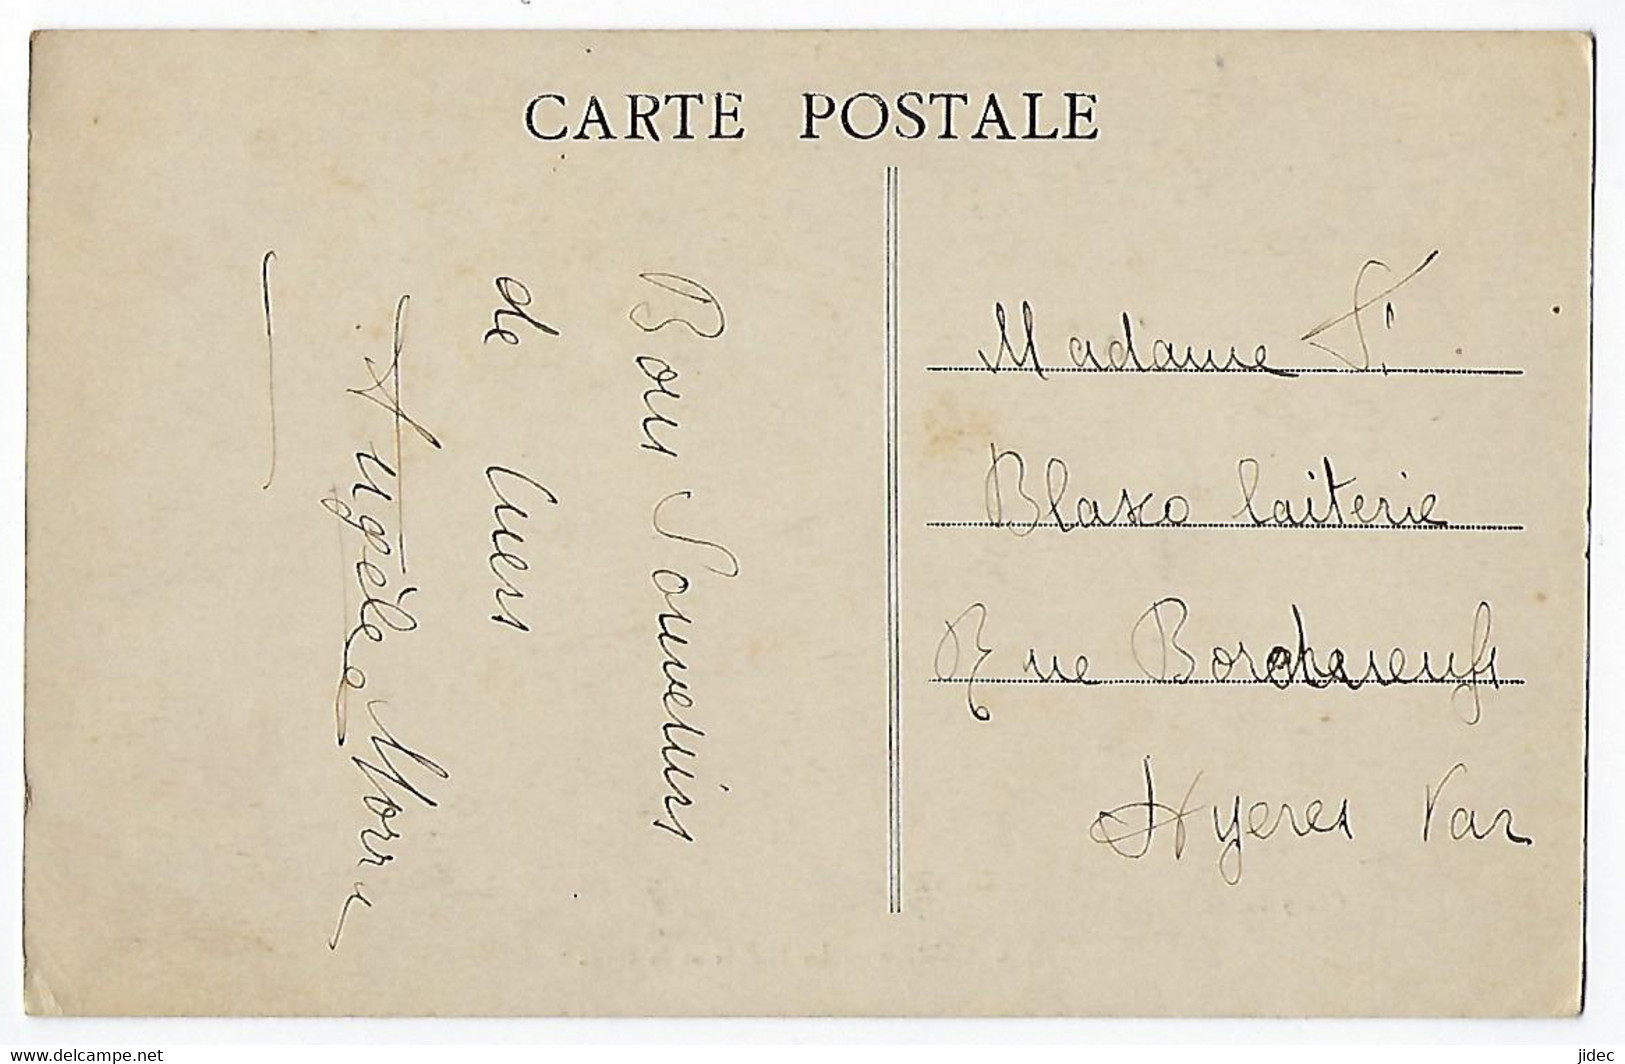 CARTE POSTALE
Bons Souvenirs
de Cuers
Angèle Morre
Madame F.
Blasco laiterie
Rue Bourgneuf
Hyeres Var
www.delcampe.net
jidec